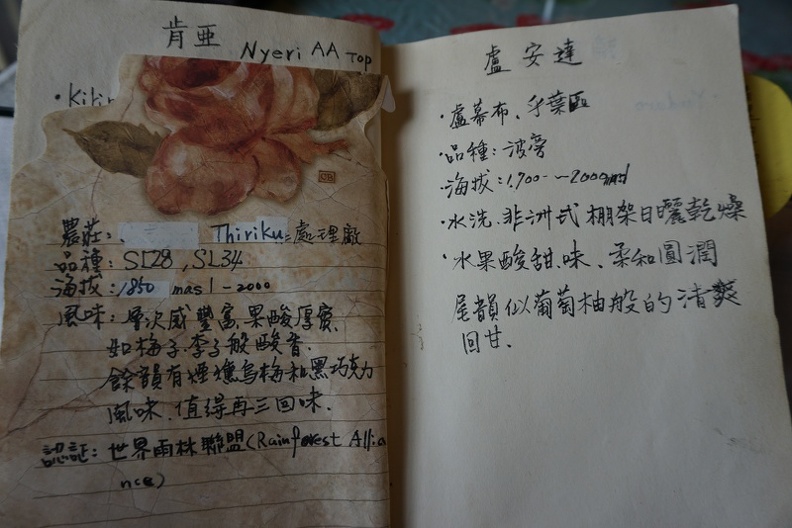 肯亞 Nyeri AA Top
農莊: Thiriku 處理廠
品種: SL28, SL34
海拔: 1850 masl - 2000
風味: 層次感豐富,果酸厚實,
如梅子.李子般酸香.
餘韻有煙燻烏梅和黑巧克力
風味.值得再三回味.
認証: 世界雨林聯盟(Rainforest Allia
nce)
盧安達
·盧幕布、手葉區
·品種: 波旁
·海拔: 1,700 ~ 2000masl
·水洗.非洲式棚架日曬乾燥
·水果酸甜味、柔和圓潤
尾韻似葡萄柚般的清爽
回甘.